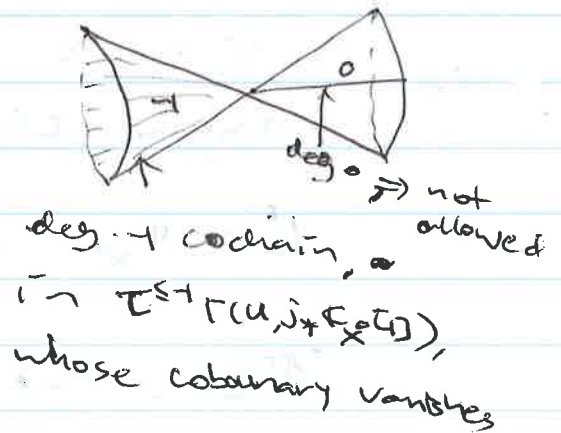 -1
0
deg. 0 ⇒ not
allowed
deg. -1 cochain,
in τ^{≤-1} Γ(U, j_* ℂ_{X^0}[1]),
whose coboundary vanishes